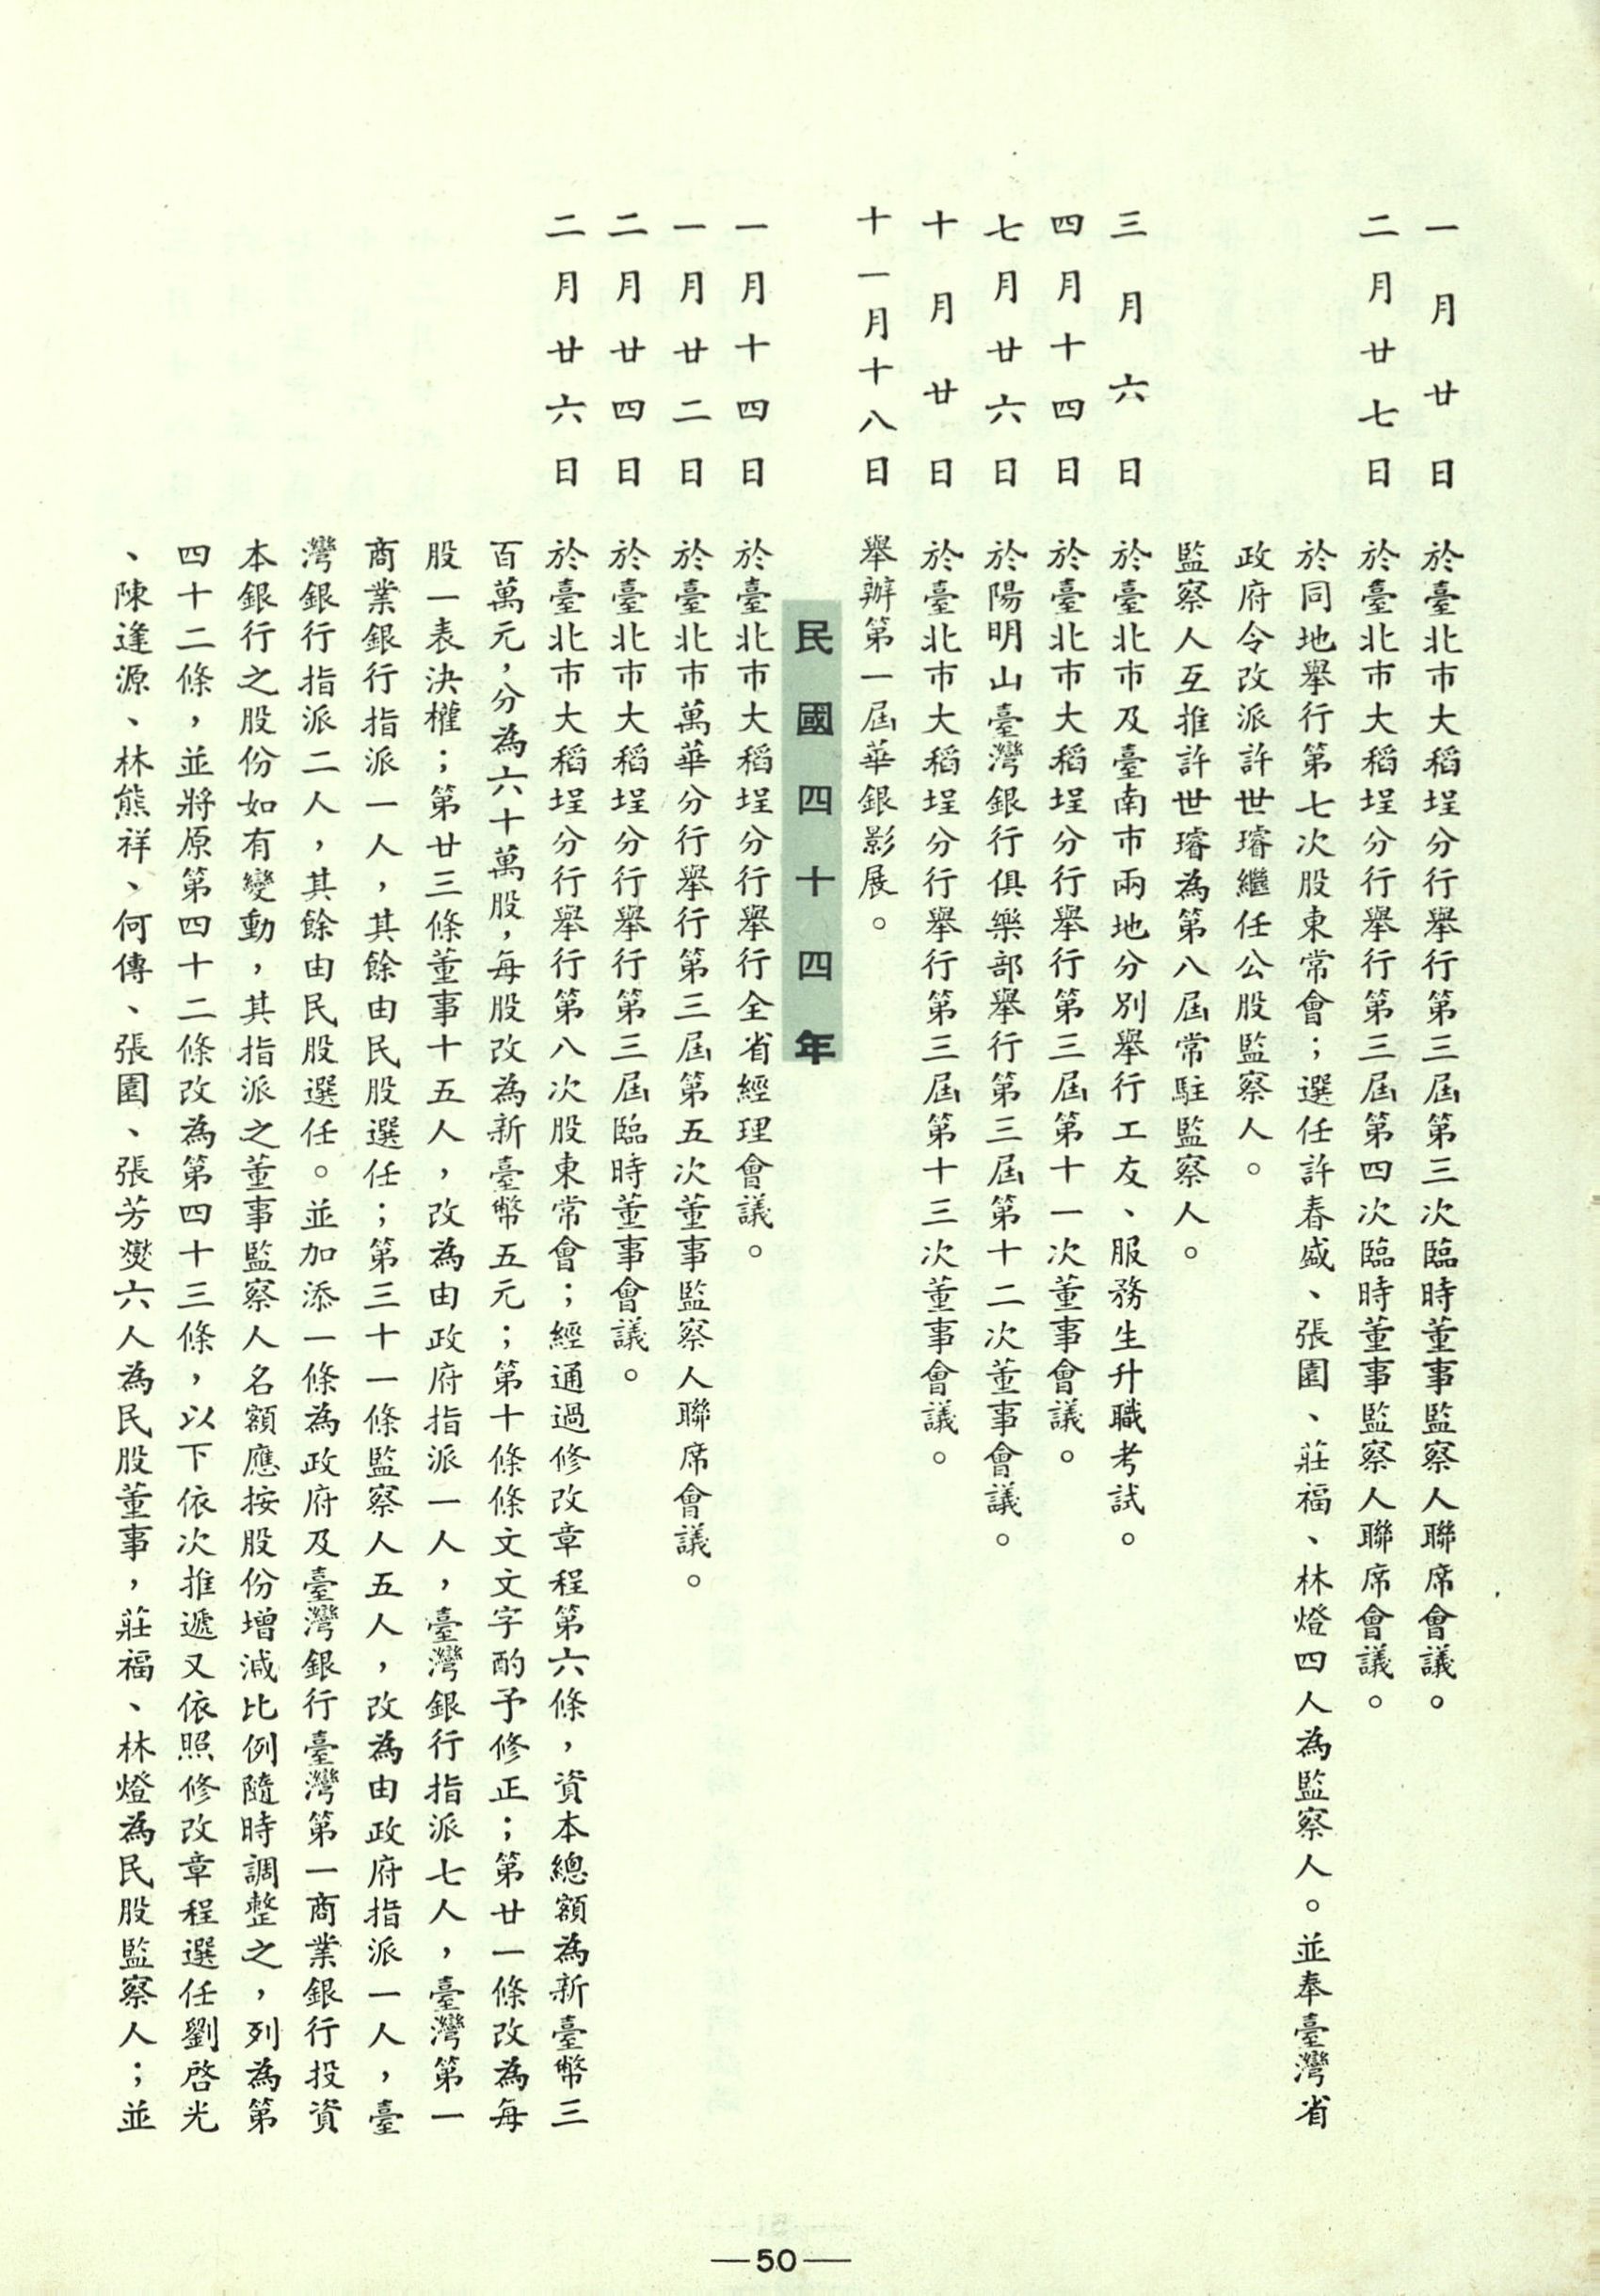 一月廿日　於臺北市大稻埕分行舉行第三屆第三次臨時董事監察人聯席會議。
二月廿七日　於臺北市大稻埕分行舉行第三屆第四次臨時董事監察人聯席會議。
於同地舉行第七次股東常會；選任許春盛、張園、莊福、林燈四人為監察人。並奉臺灣省
政府令改派許世璿繼任公股監察人。
監察人互推許世璿為第八屆常駐監察人。
三月六日　於臺北市及臺南市兩地分別舉行工友、服務生升職考試。
四月十四日　於臺北市大稻埕分行舉行第三屆第十一次董事會議。
七月廿六日　於陽明山臺灣銀行俱樂部舉行第三屆第十二次董事會議。
十月廿日　於臺北市大稻埕分行舉行第三屆第十三次董事會議。
十一月十八日　舉辦第一屆華銀影展。
民國四十四年
一月十四日　於臺北市大稻埕分行舉行全省經理會議。
一月廿二日　於臺北市萬華分行舉行第三屆第五次董事監察人聯席會議。
二月廿四日　於臺北市大稻埕分行舉行第三屆臨時董事會議。
二月廿六日　於臺北市大稻埕分行舉行第八次股東常會；經通過修改章程第六條，資本總額為新臺幣三
百萬元，分為六十萬股，每股改為新臺幣五元；第十條條文文字酌予修正；第廿一條改為每
股一表決權；第廿三條董事十五人，改為由政府指派一人，臺灣銀行指派七人，臺灣第一
商業銀行指派一人，其餘由民股選任；第三十一條監察人五人，改為由政府指派一人，臺
灣銀行指派二人，其餘由民股選任。並加添一條為政府及臺灣銀行臺灣第一商業銀行投資
本銀行之股份如有變動，其指派之董事監察人名額應按股份增減比例隨時調整之，列為第
四十二條，並將原第四十二條改為第四十三條，以下依次推遞又依照修改章程選任劉啓光
、陳逢源、林熊祥、何傳、張園、張芳燮六人為民股董事，莊福、林燈為民股監察人；並
—50—